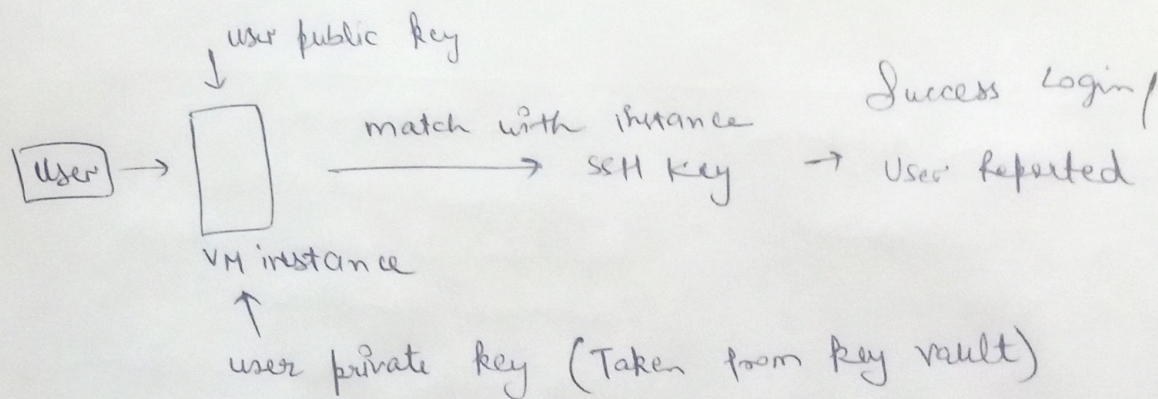 user public key
User
match with instance
SSH key
Success Login /
User Reported
VM instance
user private key (Taken from key vault)